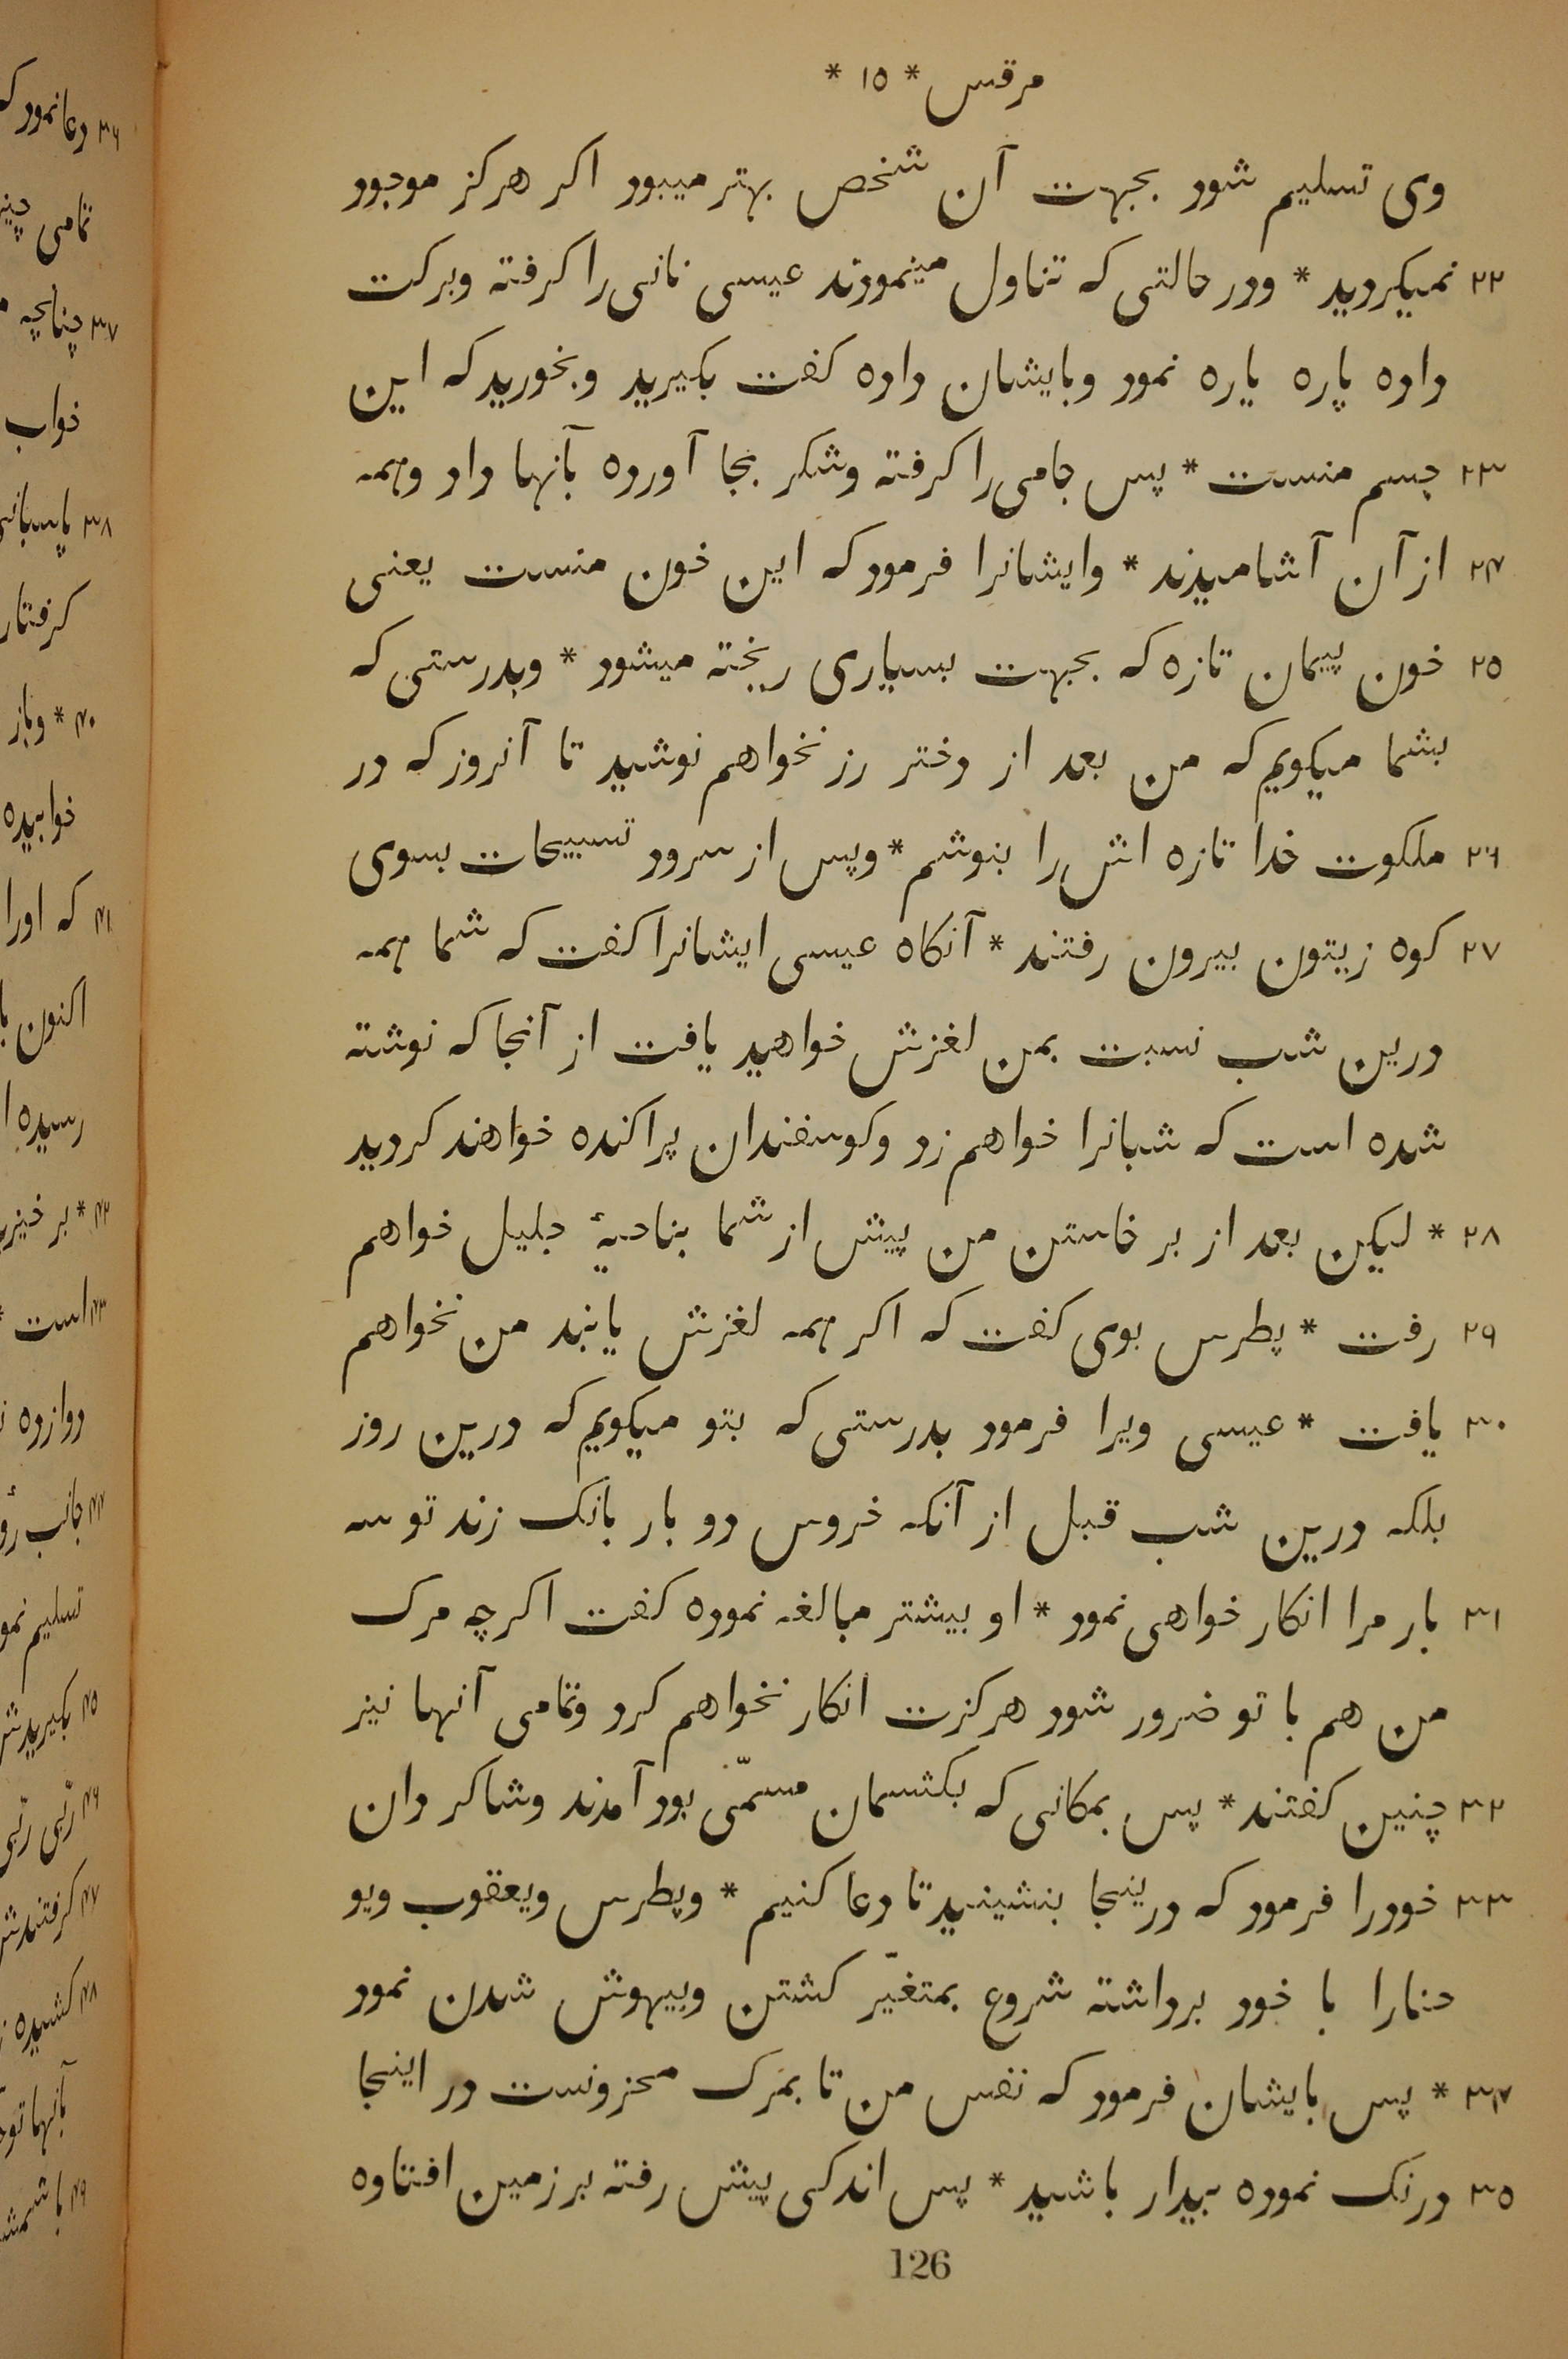 مرقس * ۱۵ *
وی تسلیم شود بجهت آن شخص بهتر میبود اکر هرکز موجود
۲۲ نمیکردید * ودر حالتی که تناول مینمودند عیسی نانی را کرفته وبرکت
داده پاره یاره نمود وبایشان داده کفت بکیرید وبخورید که این
۲۳ جسم منست * پس جامی را کرفته وشکر بجا آورده بآنها داد وهمه
۲۴ از آن آشامیدند * وایشانرا فرمود که این خون منست یعنی
۲۵ خون پیمان تازه که بجهت بسیاری ریخته میشود * وبدرستی که
بشما میکویم که من بعد از دختر رز نخواهم نوشید تا آنروز که در
۲۶ ملکوت خدا تازه اش را بنوشم * وپس از سرود تسبیحات بسوی
۲۷ کوه زیتون بیرون رفتند * آنکاه عیسی ایشانرا کفت که شما همه
درین شب نسبت بمن لغزش خواهید یافت از آنجا که نوشته
شده است که شبانرا خواهم زد وکوسفندان پراکنده خواهند کردید
۲۸ * لیکن بعد از بر خاستن من پیش از شما بناحیهٔ جلیل خواهم
۲۹ رفت * پطرس بوی کفت که اکر همه لغزش یابند من نخواهم
۳۰ یافت * عیسی ویرا فرمود بدرستی که بتو میکویم که درین روز
بلکه درین شب قبل از آنکه خروس دو بار بانک زند تو سه
۳۱ بار مرا انکار خواهی نمود * او بیشتر مبالغه نموده کفت اکرچه مرک
من هم با تو ضرور شود هرکزت انکار نخواهم کرد وتمامی آنها نیز
۳۲ چنین کفتند * پس بمکانی که بکتسمان مسمّی بود آمدند وشاکردان
۳۳ خودرا فرمود که درینجا بنشینید تا دعا کنیم * وپطرس ویعقوب ویو
حنارا با خود برداشته شروع بمتغیّر کشتن وبیهوش شدن نمود
۳۴ * پس بایشان فرمود که نفس من تا بمرک محزونست در اینجا
۳۵ درنک نموده بیدار باشید * پس اندکی پیش رفته بر زمین افتاده
126